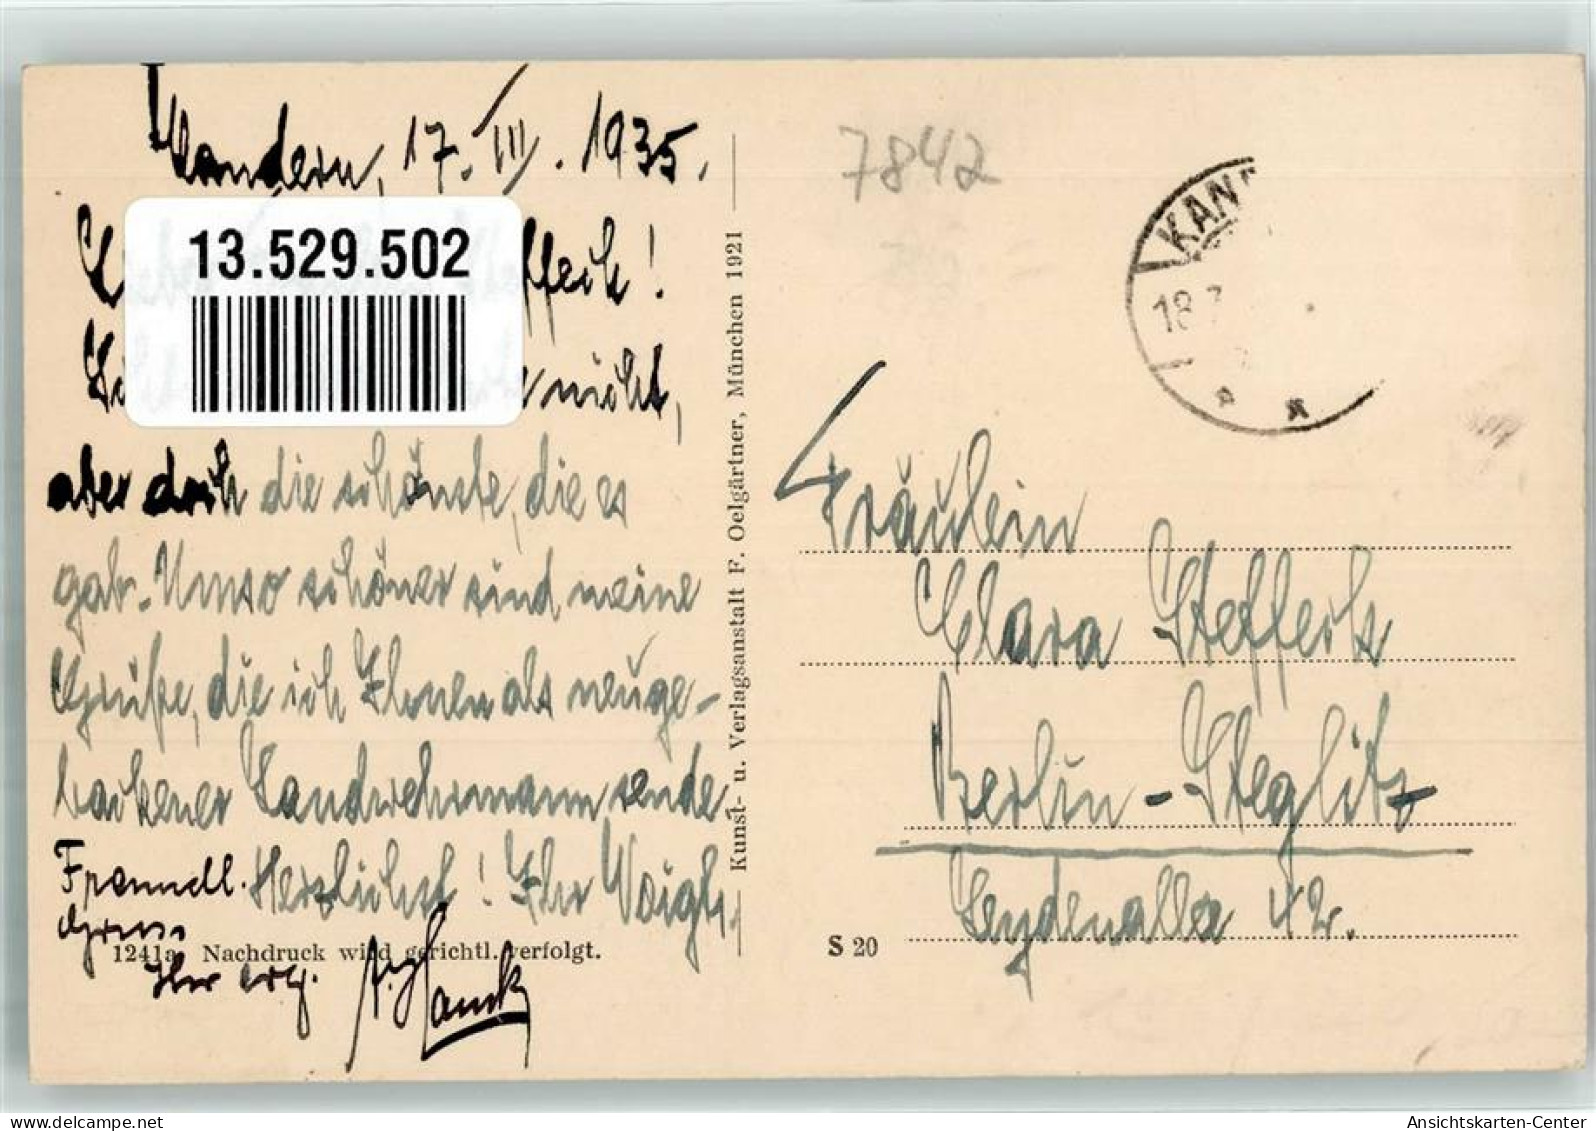 Kandern, 17. III. 1935.
13.529.502
Steffeck!
nicht,
aber doch die schönste, die es
gab. Umso schöner sind meine
Grüße, die ich Ihnen als neuge-
backener Landwehrmann sende.
Herzlichst! Ihr Voigt.
Freundl.
Gruss
Ihr erg. A. Hauck
1241a Nachdruck wird gerichtl. verfolgt.
Kunst- u. Verlagsanstalt F. Oelgärtner, München 1921
7842
KAN
18.3
Fräulein
Clara Steffeck
Berlin-Steglitz
Leydenallee 42.
S 20
delcampe.net
Ansichtskarten-Center